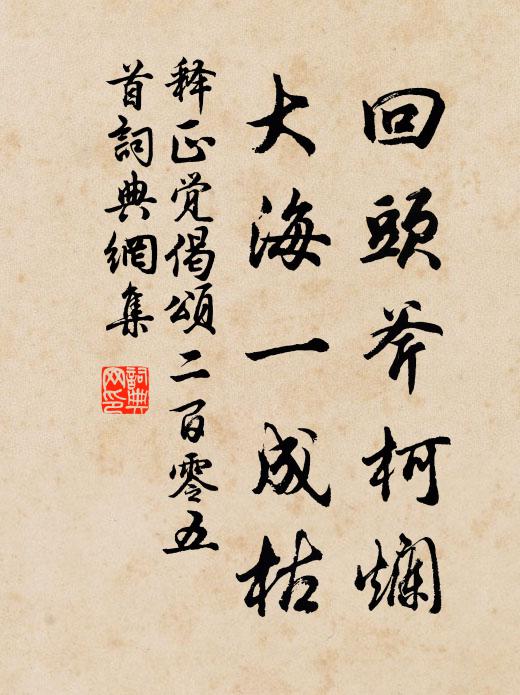 回頭斧柯爛
大海一成枯
释正觉偈頌二百零五
首詞典網集
詞典
网印